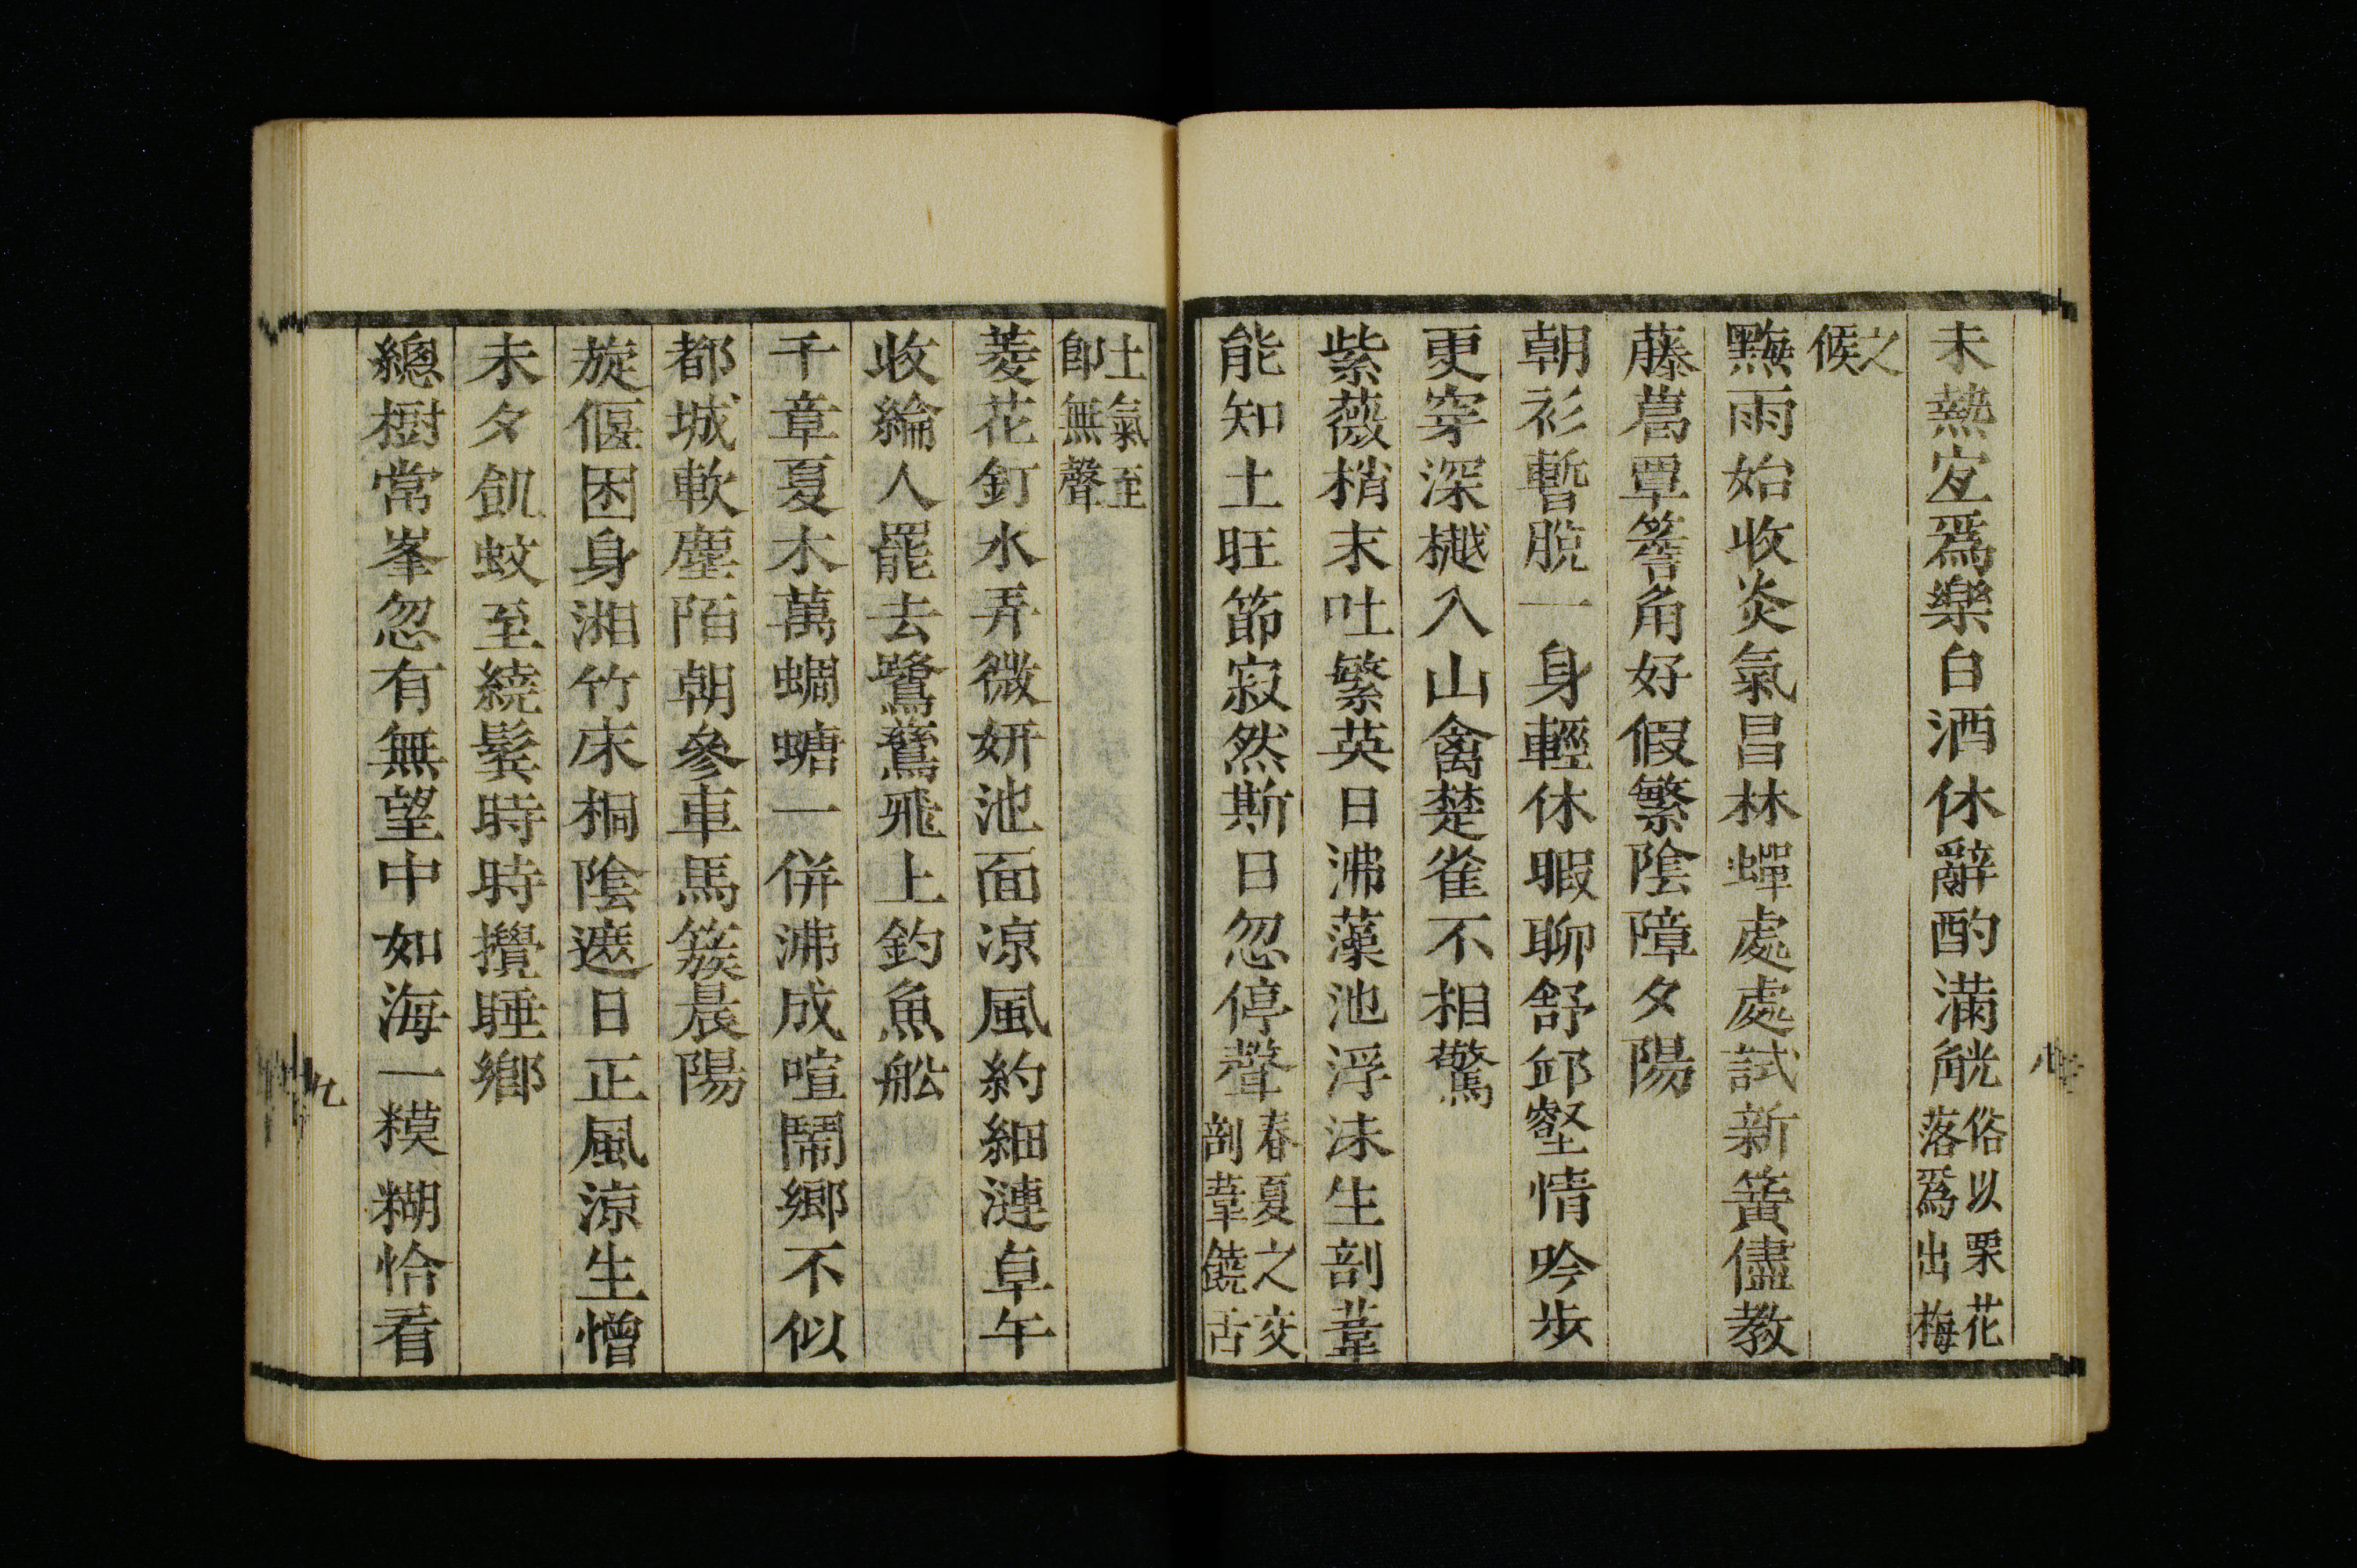 未熱宐爲樂白酒休辭酌滿觥俗以栗花落爲出梅
之候
黴雨始收炎氣昌林蟬處處試新簧儘教
藤葛覃簷角好假繁陰障夕陽
朝衫暫脫一身輕休暇聊舒邱壑情吟步
更穿深樾入山禽楚雀不相驚
紫薇梢末吐繁英日沸藻池浮沫生剖葦
能知土旺節寂然斯日忽停聲春夏之交剖葦饒舌
土氣至卽無聲
菱花釘水弄微妍池面凉風約細漣卓午
收綸人罷去鷺鶿飛上釣魚舩
千章夏木萬蜩螗一併沸成喧鬧鄉不似
都城軟塵陌朝參車馬簇晨陽
旋偃困身湘竹床桐陰遮日正風涼生憎
未夕飢蚊至繞鬓時時攪睡鄉
總樹常峯忽有無望中如海一糢糊恰看
八
九